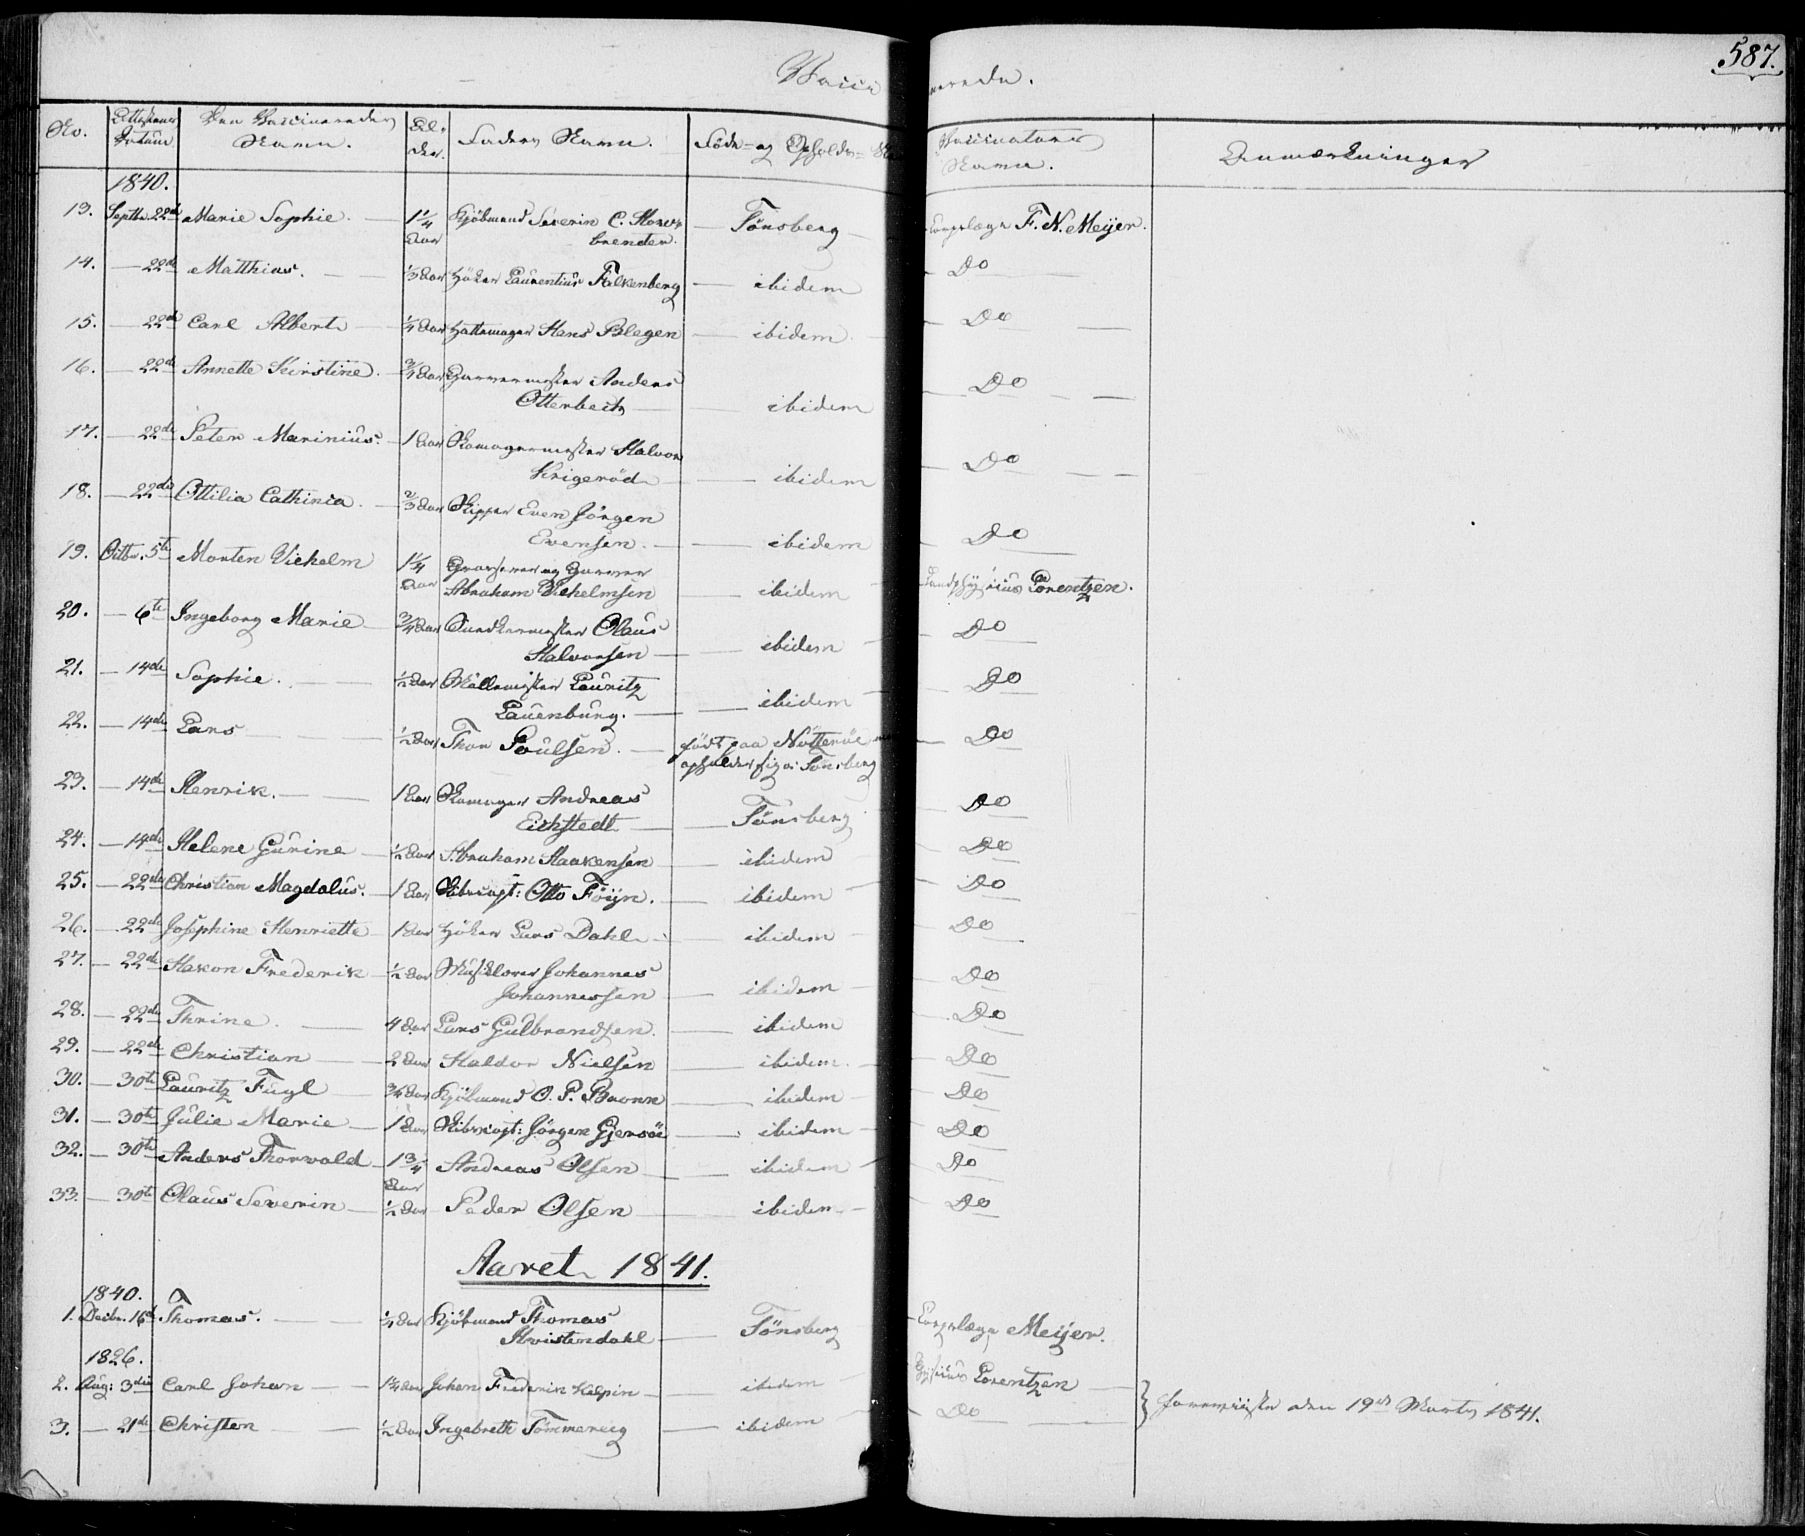 587.
Vaccinerede.
No. Attestens Datum Den Vaccineredes Navn. Alder. Faders Navn. Føde- og Opholds- Vaccinatorens Navn. Anmærkninger
1840.
13. Septbr. 22de Marie Sophie. 1 1/4 Aar Kjöbmand Severin C. — Tönsberg — Corpslæge F. N. Meijer.
brender.
14. — 22de Matthias. 1/3 Aar Höker Laurentius Falkenberg — ibidem — Do
15. — 22de Carl Albert 1/4 Aar Hattemager Hans Blegen — ibidem — Do
16. — 22de Annette Kirstine. 3/4 Aar Garvermester Anders
Otterbeck — ibidem — Do
17. — 22de Peter Marinius. 1 Aar Skomagermester Halvor
Krigeröd — ibidem — Do
18. — 22de Ottilia Cathinca. 2/3 Aar Skipper Even Jörgen
Evensen. — ibidem — Do
19. Octbr. 5te Morten Vilhelm 1 1/4 Aar Grosserer og Garver
Abraham Vilhelmsen — ibidem — Landphysicus Lorentzen.
20. — 6te Ingeborg Marie 3/4 Aar Snedkermester Olaus
Halvorsen — ibidem — Do
21. — 14de Sophie. 1/2 Aar Möllemester Lauritz
Lauenburg. — ibidem — Do
22. — 14de Lars 1/2 Aar Thor Poulsen. — födt paa Nötteröe — Do
opholder sig i Tönsberg
23. — 14de Henrik. 1 Aar Skomager Andreas
Eichstedt — Tönsberg — Do
24. — 14de Helene Gurine 1/2 Aar Abraham Haakensen — ibidem — Do
25. — 22de Christian Magdalus. 1 Aar Skibscapt: Otto Föyn. — ibidem — Do
26. — 22de Josephine Henriette 1 Aar Höker Lars Dahl — ibidem — Do
27. — 22de Hakon Frederik 1/2 Aar Johannes
Johannessen — ibidem — Do
28. — 22de Thrine. 4 Aar Lars Gulbrandsen. — ibidem — Do
29. — 22de Christian 2 Aar Haldor Nielsen — ibidem. — Do
30. — 30te Lauritz Fugl 3/4 Aar Kjöbmand O. P. Bronn — ibidem — Do
31. — 30te Julie Marie 1 Aar Skibscapt: Jörgen Gjersöe — ibidem — Do
32. — 30te Anders Thorvald 1 3/4 Aar Andreas Olsen — ibidem — Do
33. — 30te Olaus Severin 1/2 Aar Peder Olsen — ibidem — Do
Aaret 1841.
1840.
1. Decbr. 16de Thomas. 1/4 Aar Kjöbmand Thomas
Kristendahl — Tönsberg — Corpslæge Meijer.
1826.
2. Aug: 3die Carl Johan 1 1/4 Aar Johan Frederik Kelpin — ibidem — Physicus Lorentzen
3. — 21de Christen 1/2 Aar Ingebreth Tömmervig — ibidem — Do } foreviiste den 19de Marts 1841.